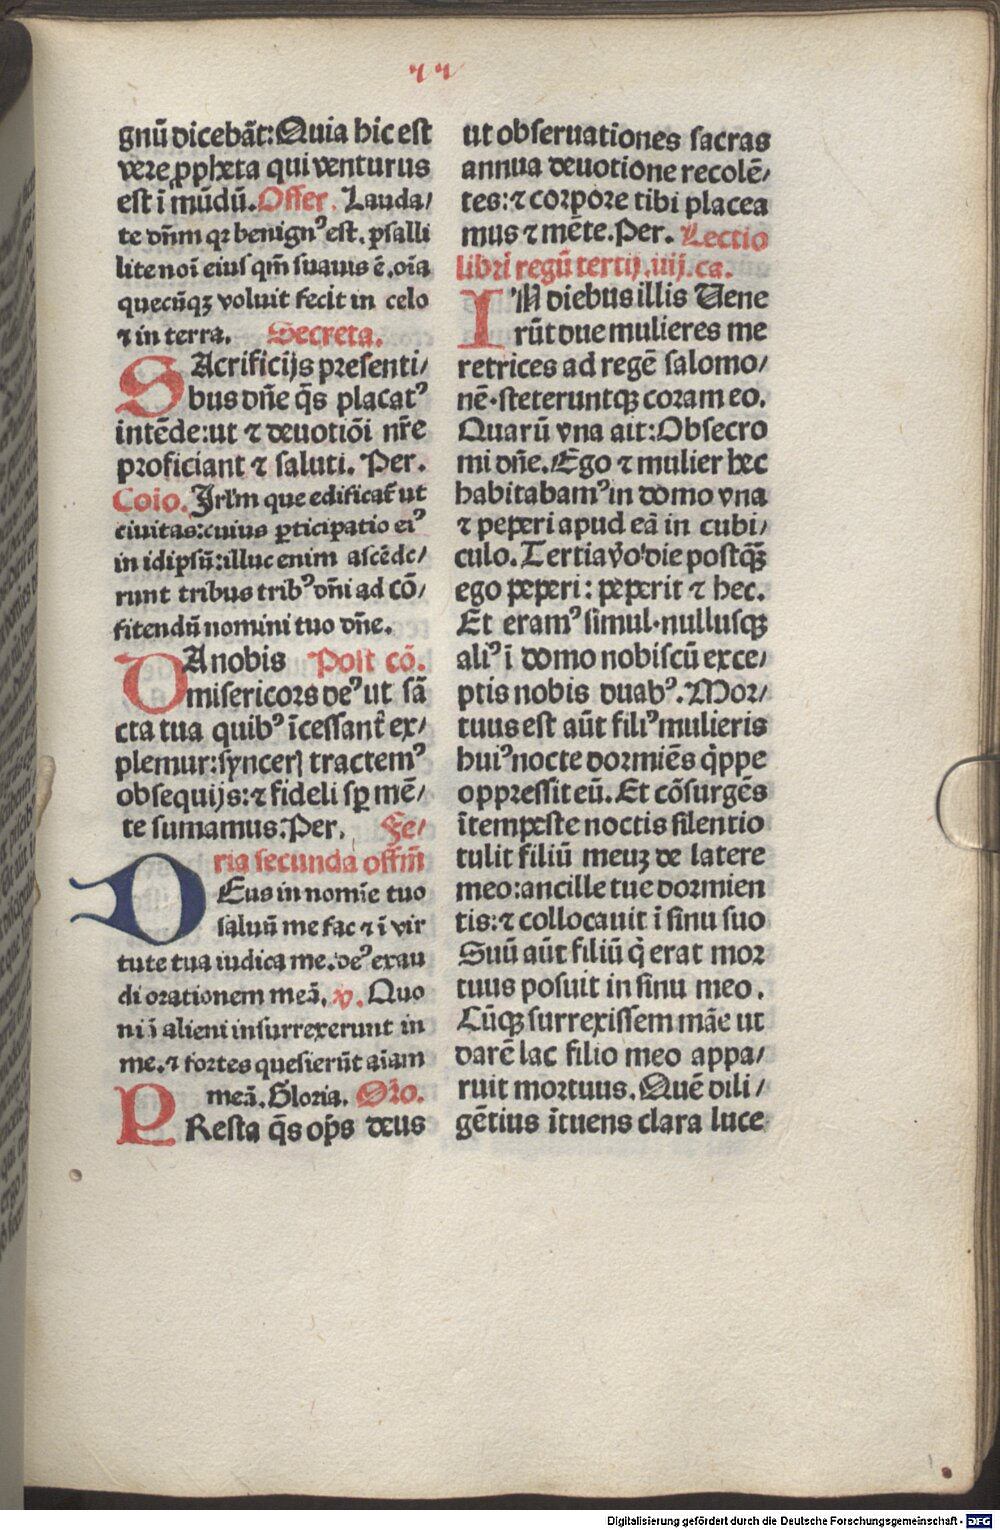 77
gnũ dicebãt: Quia hic est
vere ꝓpheta qui venturus
est ĩ mũdũ. Offer. Lauda/
te dñm qꝛ benignꝰ est. psalli
lite noĩ eius qm̃ suauis ẽ. oĩa
quecũqꝫ voluit fecit in celo
⁊ in terra. Secreta.
SAcrificijs presenti/
bus dñe q̃s placatꝰ
intẽde: ut ⁊ deuotiõi nr̃e
proficiant ⁊ saluti. Per.
Coĩo. Jrl'm que edificat̃ ut
ciuitas: cuius ꝑticipatio eiꝰ
in idipsũ: illuc enim ascẽde/
runt tribus tribꝰ dñi ad cõ/
fitendũ nomini tuo dñe.
DA nobis Post cõ.
misericors deꝰ ut sã
cta tua quibꝰ ĩcessant̃ ex/
plemur: synceris tractemꝰ
obsequijs: ⁊ fideli sꝑ mẽ/
te sumamus. Per. Fe/
ria secunda offm̃
DEus in nomĩe tuo
saluũ me fac ⁊ ĩ vir
tute tua iudica me. deꝰ exau
di orationem meã. v. Quo
ni ĩ alieni insurrexerunt in
me. ⁊ fortes quesierũt aĩam
meã. Gloria. Oĩo.
PResta q̃s op̃s deus
ut obseruationes sacras
annua deuotione recolẽ/
tes: ⁊ corpore tibi placea
mus ⁊ mẽte. Per. Lectio
libri regũ tertij. iij. ca.
IN diebus illis Vene
rũt due mulieres me
retrices ad regẽ salomo/
nẽ. steteruntqꝫ coram eo.
Quarũ vna ait: Obsecro
mi dñe. Ego ⁊ mulier hec
habitabamꝰ in domo vna
⁊ peperi apud eã in cubi/
culo. Tertia vo die postqꝫ̃
ego peperi: peperit ⁊ hec.
Et eramꝰ simul. nullusqꝫ
aliꝰ ĩ domo nobiscũ exce/
ptis nobis duabꝰ. Mor/
tuus est aũt filiꝰ mulieris
huiꝰ nocte dormiẽs q̃ppe
oppressit eũ. Et cõsurgẽs
ĩtempeste noctis silentio
tulit filiũ meuꝫ de latere
meo: ancille tue dormien
tis: ⁊ collocauit ĩ sinu suo
Suũ aũt filiũ q̃ erat mor
tuus posuit in sinu meo.
Cũqꝫ surrexissem mãe ut
darẽ lac filio meo appa/
ruit mortuus. Quẽ dili/
gẽtius ĩtuens clara luce
Digitalisierung gefördert durch die Deutsche Forschungsgemeinschaft - DFG